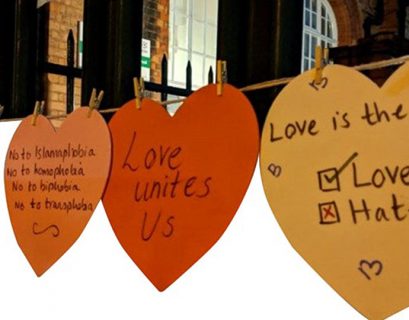 No to Islamaphobia
No to homophobia
No to biphobia
No to transphobia
Love
unites
Us
Love is the
Love
Hat